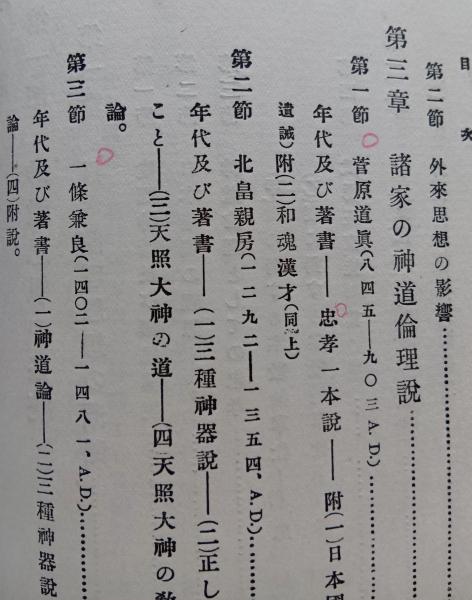 目次
第二節 外來思想の影響…………
第三章 諸家の神道倫理說…………
第一節 菅原道眞(八四五——九〇三A.D.)…………
年代及び著書——忠孝一本說——附(一)日本國
遺誡)附(二)和魂漢才(同上)
第二節 北畠親房(一二九二——一三五四、A.D.)…………
年代及び著書——(一)三種神器說——(二)正し
こと——(三)天照大神の道——(四)天照大神の敎
論。
第三節 一條兼良(一四〇二——一四八一、A.D.)…………
年代及び著書——(一)神道論——(二)三種神器說
論——(四)附說。